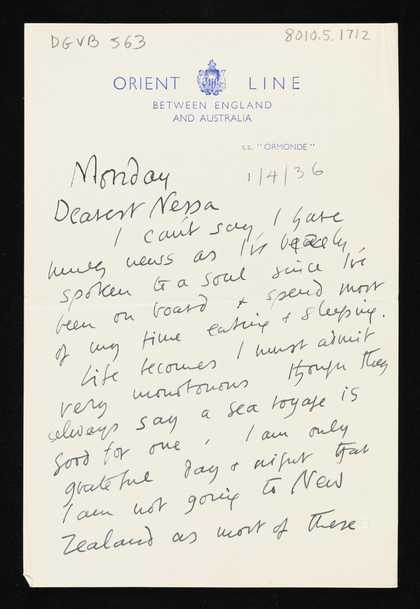 DGVB 563
8010.5.1712
ORIENT LINE
BETWEEN ENGLAND
AND AUSTRALIA
s.s. "ORMONDE"
Monday
1/4/36
Dearest Nessa
I can't say I have
much news as I've barely
spoken to a soul since I've
been on board & spend most
of my time eating & sleeping.
Life becomes I must admit
very monotonous though they
always say a sea voyage is
good for one. I am only
grateful day & night that
I am not going to New
Zealand as most of these